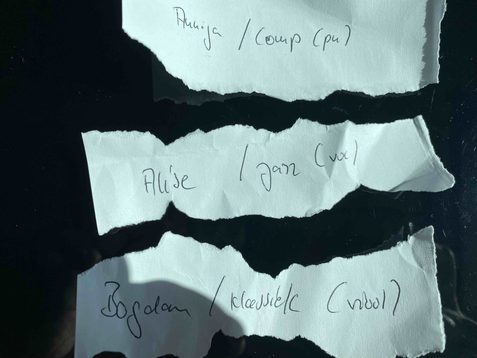 Annija / comp (pn)
Alise / jazz (voc)
Bogdan / klassiek (viool)